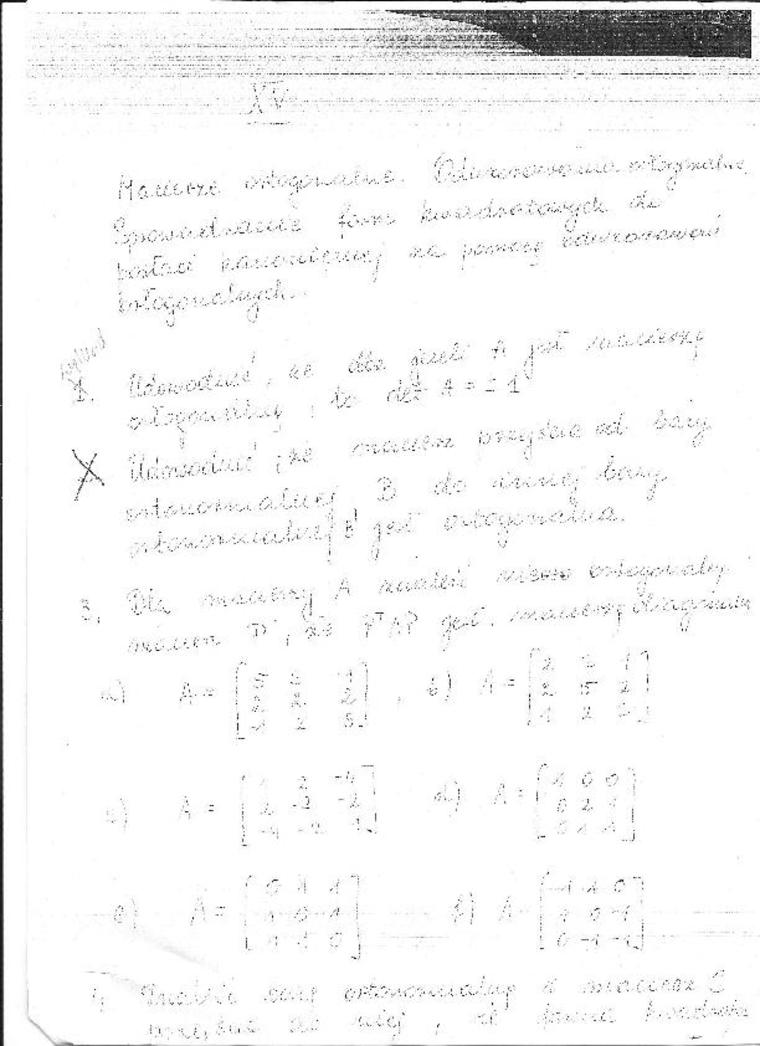 XV
Macierze ortogonalne. Odwzorowania ortogonalne.
Sprowadzanie form kwadratowych do
postaci kanonicznej za pomocą odwzorowań
ortogonalnych.
1. Udowodnić, że dla jeżeli A jest macierzą
ortogonalną, to det A = ± 1
Udowodnić, że macierz przejścia od bazy
ortonormalnej B do innej bazy
ortonormalnej B' jest ortogonalna.
3. Dla macierzy A znaleźć macierz ortogonalną
macierz P, że PᵀAP jest macierzą diagonalną
a) A = [ 5 2 2 2 2 5 ], b) A = [ 2 2 1 2 5 2 1 2 2 ]
c) A = [ 1 2 -4 2 -2 -2 -4 -2 1 ] d) A = [ 1 0 0 0 2 1 0 1 1 ]
e) A = [ 0 1 1 1 0 1 1 0 ] f) A = [ -1 1 0 1 0 -1 0 -1 -1 ]
4. Znaleźć bazę ortonormalną i macierz C
przejścia do niej, że forma kwadratowa